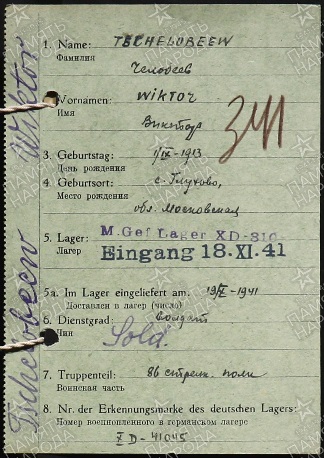 1. Name: TSCHELOBEEW
Фамилия Челобеев
2. Vornamen: WIKTOR
Имя Виктор
341
3. Geburtstag: 1/IX-1913
День рождения
4. Geburtsort: с. Глухово,
Место рождения обл. Московская
5. Lager: M. Gef Lager XD-310
Лагерь Eingang 18. XI. 41
5a. Im Lager eingeliefert am. 19/X-1941
Доставлен в лагерь (число)
6. Dienstgrad: Солдат
Чин Sold.
7. Truppenteil: 86 стрелк. полк
Воинская часть
8. Nr. der Erkennungsmarke des deutschen Lagers:
Номер военнопленного в германском лагере
X D-41045
Tschelobeew Wiktor